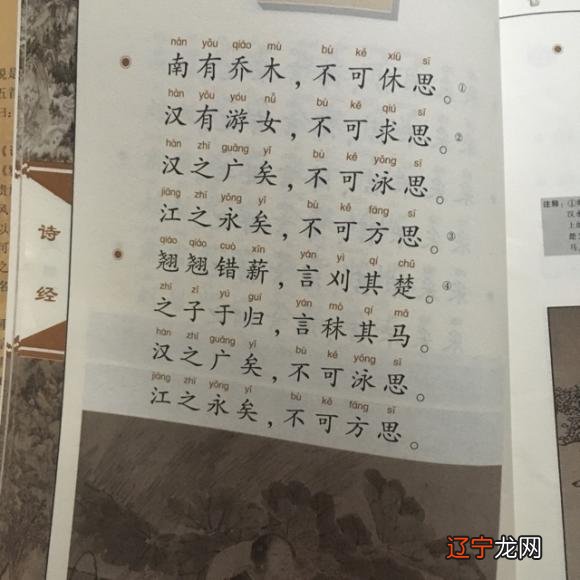 nán yǒu qiáo mù bù kě xiū sī
南有乔木，不可休思。①
hàn yǒu yóu nǚ bù kě qiú sī
汉有游女，不可求思。②
hàn zhī guǎng yǐ bù kě yǒng sī
汉之广矣，不可泳思。
jiāng zhī yǒng yǐ bù kě fāng sī
江之永矣，不可方思。③
qiáo qiáo cuò xīn yán yì qí chǔ
翘翘错薪，言刈其楚。④
zhī zǐ yú guī yán mò qí mǎ
之子于归，言秣其马。
hàn zhī guǎng yǐ bù kě yǒng sī
汉之广矣，不可泳思。
jiāng zhī yǒng yǐ bù kě fāng sī
江之永矣，不可方思。
诗经
注释：①
辽宁龙网